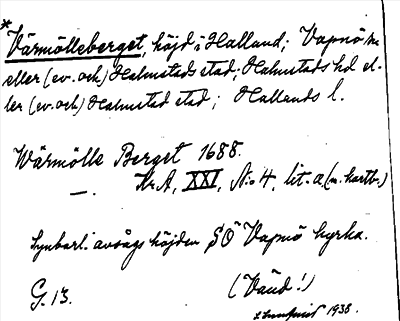 *
Värmölleberget, höjd i Halland; Vapnö sn
eller (ev. och) Halmstads stad; Halmstads hd el-
ler (ev. och) Halmstad stad; Hallands l.
Wärmölle Berget 1688.
—. Kr. A, XXI, N:o 4, lit. a (m. kartb.)
Synbarl. avsågs höjden SÖ Vapnö kyrka.
G. 13. (Vänd!)
1938.